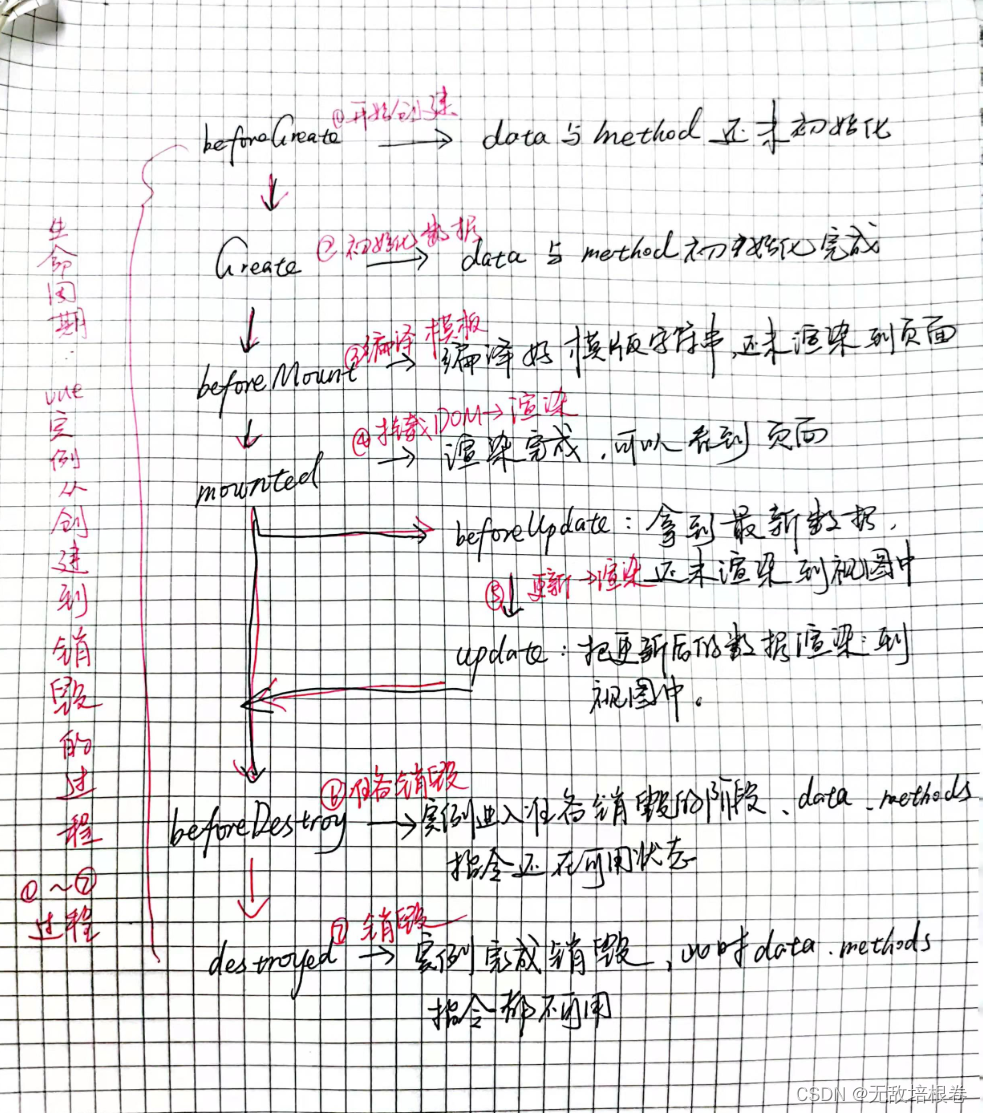 beforeCreate ①开始创建 → data与method还未初始化
Create ②初始化数据 → data与method初始化完成
beforeMount ③编译模板 → 编译好模版字符串,还未渲染到页面
mounted ④挂载DOM→渲染 → 渲染完成,可以看到页面
beforeUpdate:拿到最新数据,
⑤更新→渲染 还未渲染到视图中
update:把更新后的数据渲染到
视图中。
beforeDestroy ⑥准备销毁 → 实例进入准备销毁的阶段、data、methods
指令还在可用状态
destroyed ⑦销毁 → 实例完成销毁,此时data、methods
指令都不可用
生命周期:vue实例从创建到销毁的过程
①~⑦
过程
CSDN @无敌培根卷